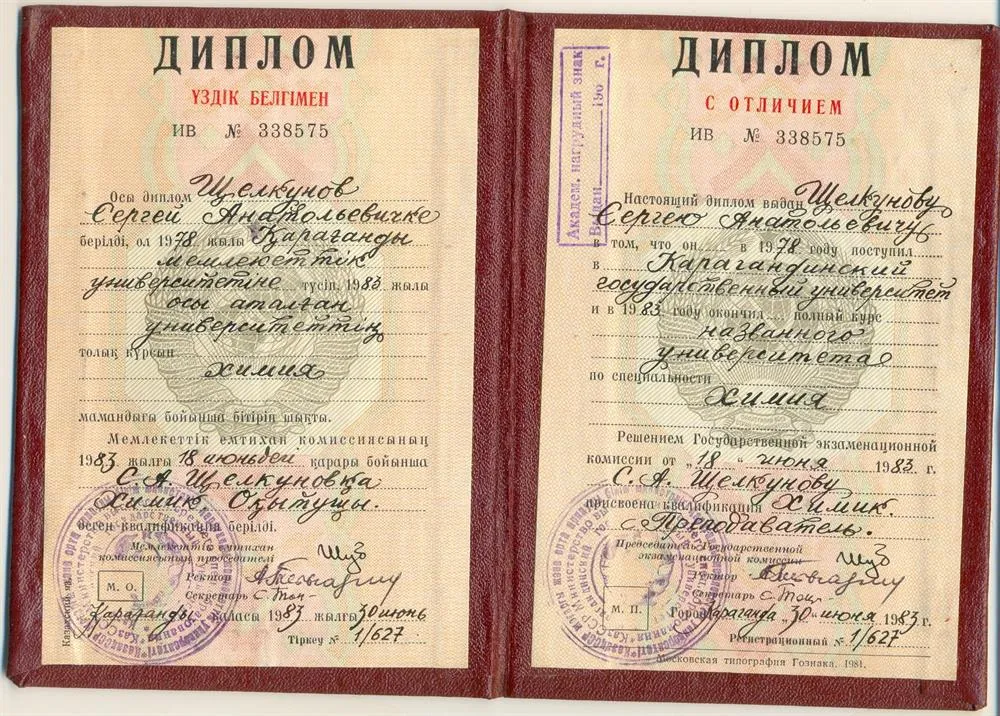 ДИПЛОМ
ҮЗДІК БЕЛГІМЕН
ИВ № 338575
Осы диплом Щелкунов
Сергей Анатольевичке
берілді, ол 1978 жылы Қарағанды
мемлекеттік
университетіне түсіп, 1983 жылы
осы аталған
университеттің
толық курсын
химия
мамандығы бойынша бітіріп шықты.
Мемлекеттік емтихан комиссиясының
1983 жылғы 18 июньдегі қарары бойынша
С. А. Щелкуновқа
Химик Оқытушы.
деген квалификация берілді.
Мемлекеттік емтихан
комиссиясының председателі
Ректор
Секретарь
М. О.
Қарағанды қаласы 1983 жылғы 30 июнь
Тіркеу № 1/627
ДИПЛОМ
С ОТЛИЧИЕМ
ИВ № 338575
Академ. нагрудный знак
Выдан 198 г.
Настоящий диплом выдан Щелкунову
Сергею Анатольевичу
в том, что он в 1978 году поступил
в Карагандинский
государственный университет
и в 1983 году окончил полный курс
названного
университета
по специальности
химия
Решением Государственной экзаменационной
комиссии от „18“ июня 1983 г.
С. А. Щелкунову
присвоена квалификация Химик.
Преподаватель.
Председатель Государственной
экзаменационной комиссии
Ректор
Секретарь
М. П.
Город Караганда „30“ июня 1983 г.
Регистрационный № 1/627
Московская типография Гознака. 1981.